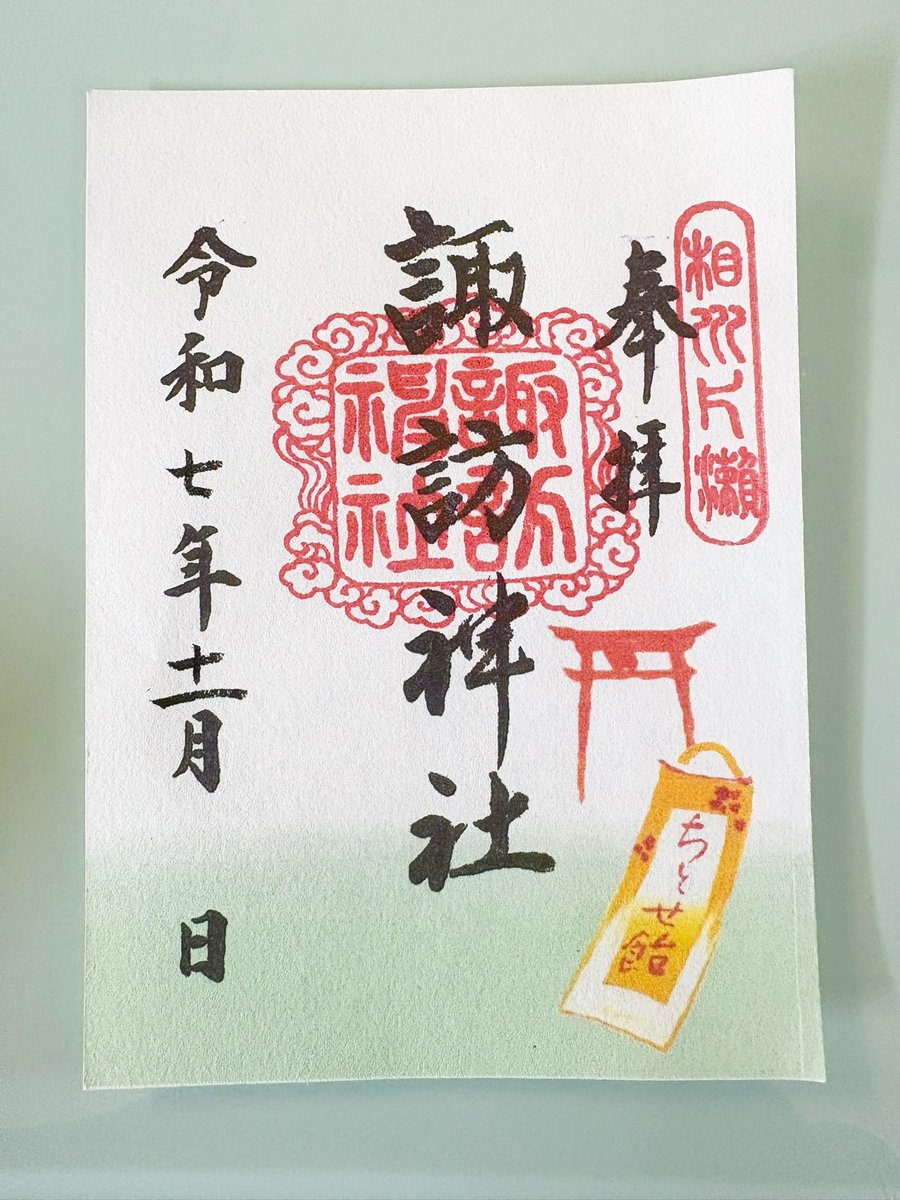 相州片瀬
奉拝
諏訪神社
諏訪
神社
ちとせ飴
令和七年十一月 日